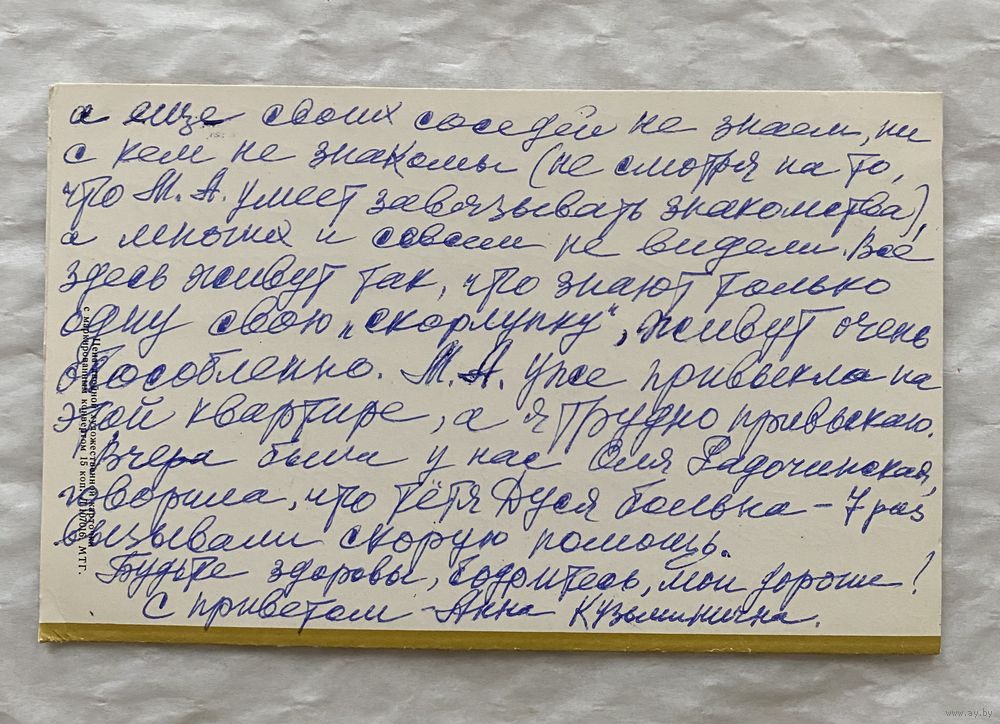 а еще своих соседей не знаем, ни
с кем не знакомы (не смотря на то,
что М.А. умеет завязывать знакомства)
а многих и совсем не видели. Всё
здесь живут так, что знают только
одну свою „скорлупку", живут очень
обособленно. М.А. уже привыкла на
этой квартире, а я трудно привыкаю.
Вчера была у нас Оля Радочинская,
говорила, что тётя Дуся больна – 7 раз
вызывали скорую помощь.
Будьте здоровы, бодритесь, мои дорогие!
С приветом – Анна Кузьминична.
Цена двойной художественной карточки
с маркированным конвертом 15 коп.
МТГ.
www.ay.by